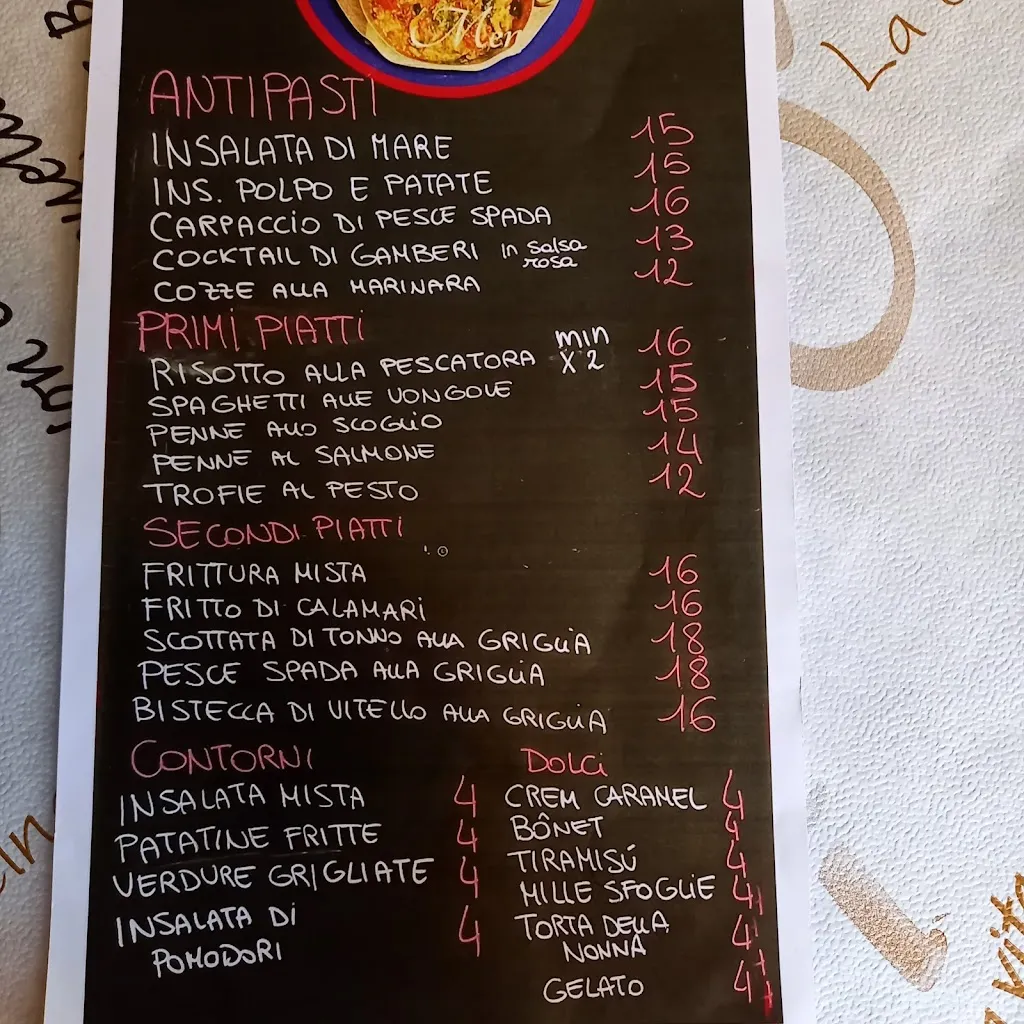 Men
ANTIPASTI
INSALATA DI MARE 15
INS. POLPO E PATATE 15
CARPACCIO DI PESCE SPADA 16
COCKTAIL DI GAMBERI in salsa rosa 13
COZZE ALLA MARINARA 12
PRIMI PIATTI
RISOTTO ALLA PESCATORA min X 2 16
SPAGHETTI ALLE VONGOLE 15
PENNE ALLO SCOGLIO 15
PENNE AL SALMONE 14
TROFIE AL PESTO 12
SECONDI PIATTI
FRITTURA MISTA 16
FRITTO DI CALAMARI 16
SCOTTATA DI TONNO ALLA GRIGLIA 18
PESCE SPADA ALLA GRIGLIA 18
BISTECCA DI VITELLO ALLA GRIGLIA 16
CONTORNI
INSALATA MISTA 4
PATATINE FRITTE 4
VERDURE GRIGLIATE 4
INSALATA DI
POMODORI 4
DOLCI
CREM CARAMEL 4
BÔNET 4
TIRAMISÚ 4
MILLE SFOGLIE 4
TORTA DELLA
NONNA 4
GELATO 4
La